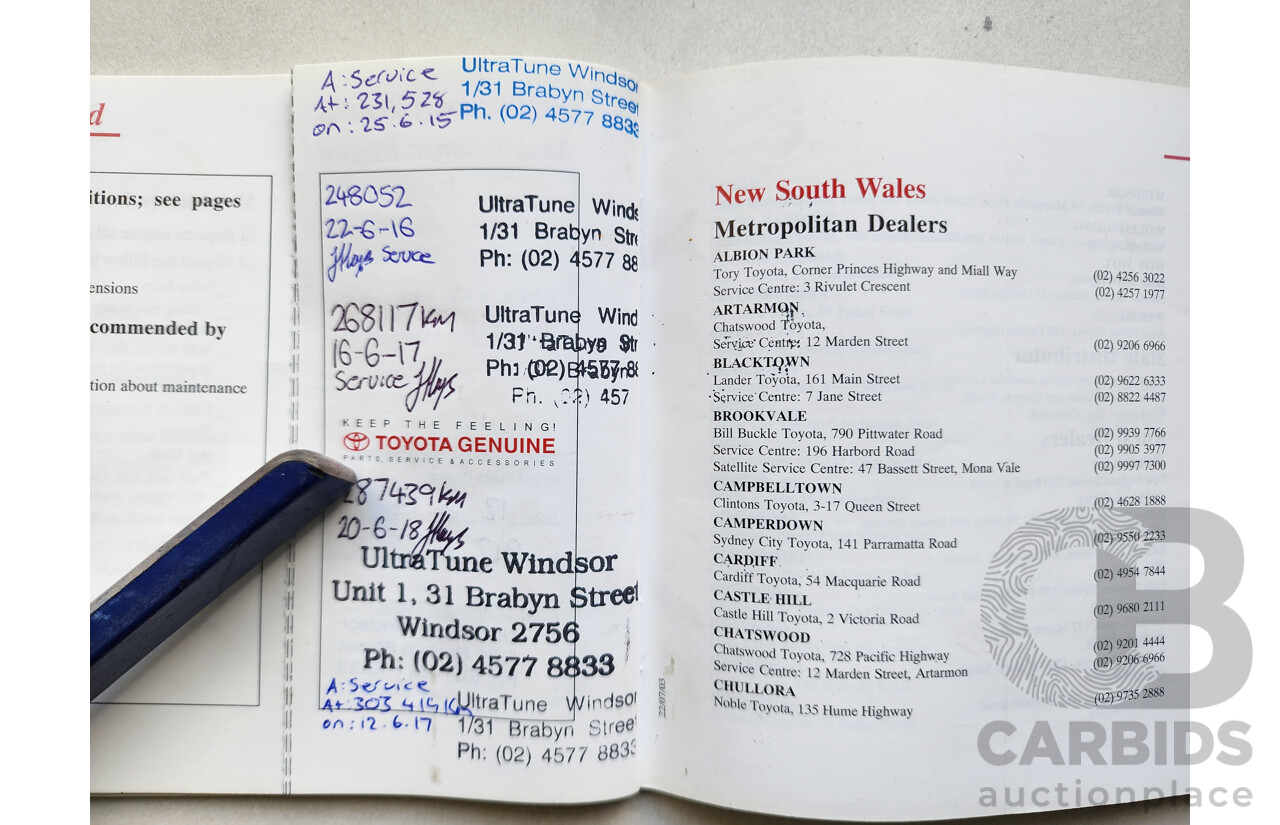 d
itions; see pages
ensions
commended by
tion about maintenance
A: Service
At: 231,528
on: 25.6.15
UltraTune Windsor
1/31 Brabyn Street
Ph. (02) 4577 8833
248052
22-6-16
Service
UltraTune Winds
1/31 Brabyn Stre
Ph: (02) 4577 88
268117km
16-6-17
Service
UltraTune Wind
1/31 Brabyn St
Ph: (02) 4577 8
Ph. (02) 457
KEEP THE FEELING!
TOYOTA GENUINE
PARTS, SERVICE & ACCESSORIES
287439km
20-6-18
UltraTune Windsor
Unit 1, 31 Brabyn Street
Windsor 2756
Ph: (02) 4577 8833
A: Service
At: 303 414 km
on: 12.6.17
UltraTune Windsor
1/31 Brabyn Street
Ph: (02) 4577 8833
22/07/03
New South Wales
Metropolitan Dealers
ALBION PARK
Tory Toyota, Corner Princes Highway and Miall Way (02) 4256 3022
Service Centre: 3 Rivulet Crescent (02) 4257 1977
ARTARMON
Chatswood Toyota,
Service Centre: 12 Marden Street (02) 9206 6966
BLACKTOWN
Lander Toyota, 161 Main Street (02) 9622 6333
Service Centre: 7 Jane Street (02) 8822 4487
BROOKVALE
Bill Buckle Toyota, 790 Pittwater Road (02) 9939 7766
Service Centre: 196 Harbord Road (02) 9905 3977
Satellite Service Centre: 47 Bassett Street, Mona Vale (02) 9997 7300
CAMPBELLTOWN
Clintons Toyota, 3-17 Queen Street (02) 4628 1888
CAMPERDOWN
Sydney City Toyota, 141 Parramatta Road (02) 9550 2233
CARDIFF
Cardiff Toyota, 54 Macquarie Road (02) 4954 7844
CASTLE HILL
Castle Hill Toyota, 2 Victoria Road (02) 9680 2111
CHATSWOOD
Chatswood Toyota, 728 Pacific Highway (02) 9201 4444
Service Centre: 12 Marden Street, Artarmon (02) 9206 6966
CHULLORA
Noble Toyota, 135 Hume Highway (02) 9735 2888
CB
CARBIDS
auctionplace